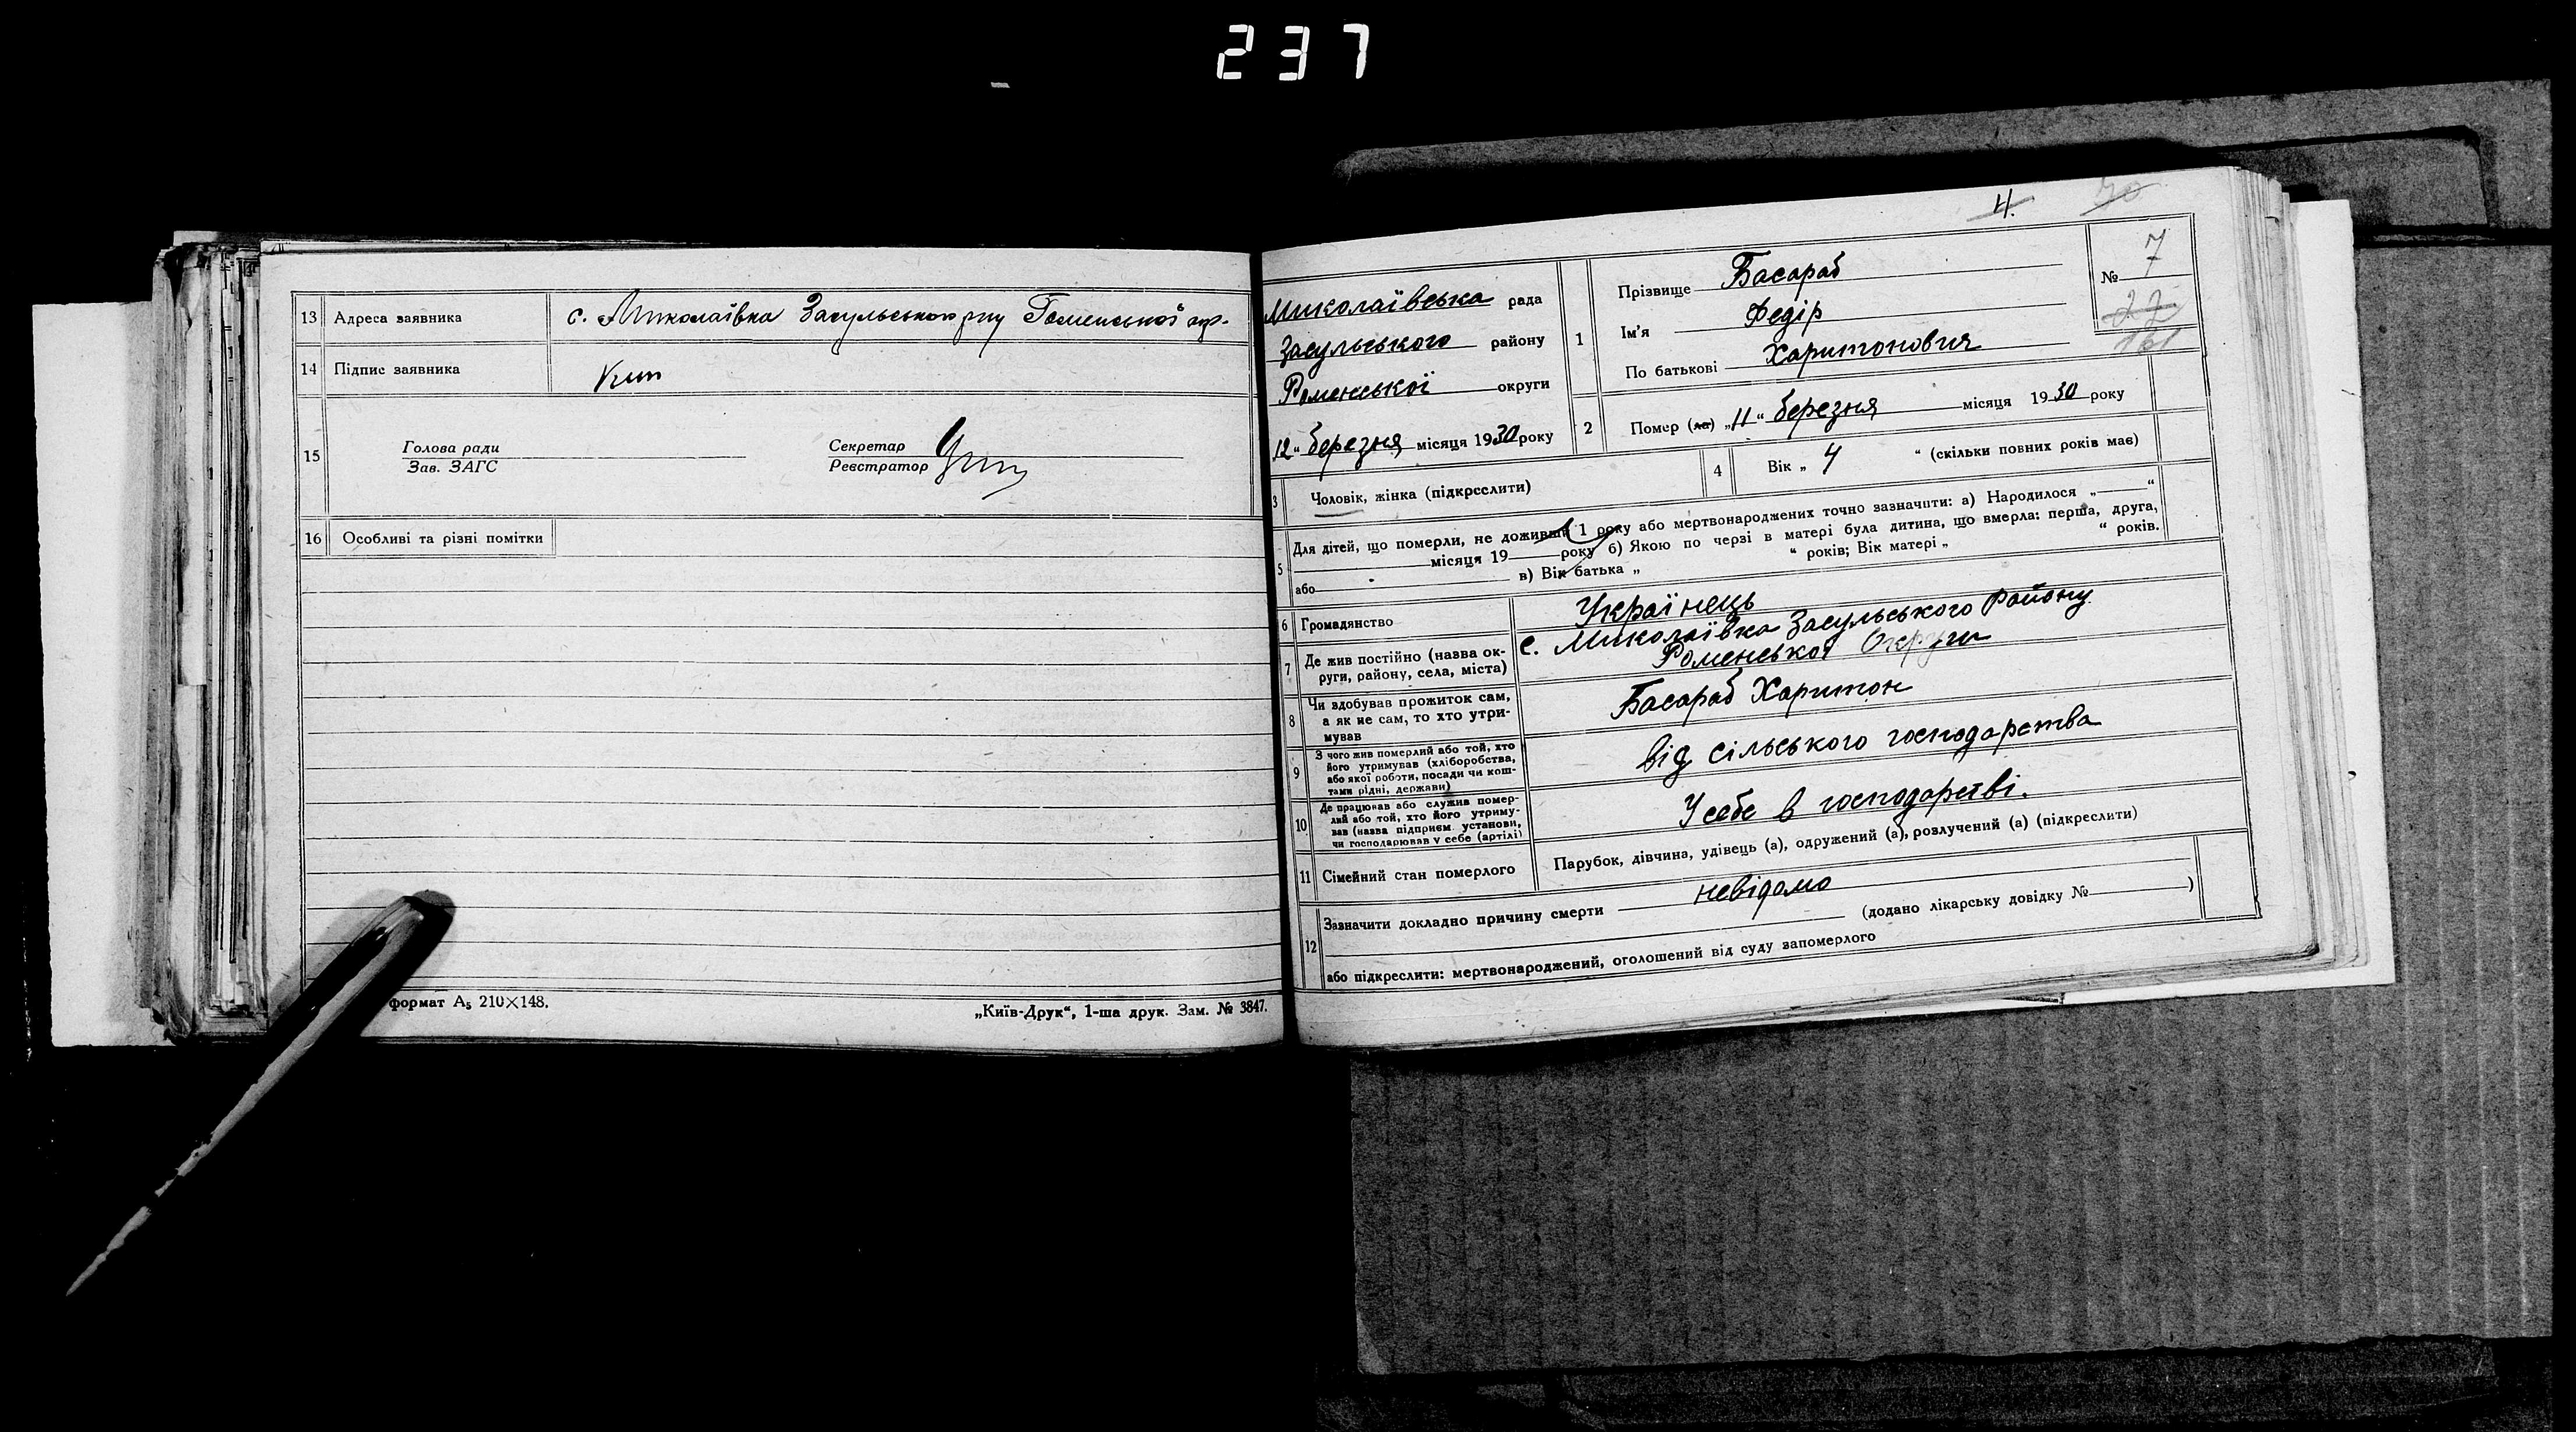 237
13 Адреса заявника с. Миколаївка Засульського рну Роменської окр.
14 Підпис заявника
15 Голова ради
Зав. ЗАГС
Секретар
Реєстратор
16 Особливі та різні помітки
формат А5 210×148.
„Київ-Друк“, 1-ша друк. Зам. № 3847.
4.
Миколаївська рада
Засульського району
Роменської округи
12 “ березня місяця 1930 року
1 Прізвище Басараб
Ім'я Федір
По батькові Харитонович
№ 7
22
2 Помер (ла) „ 11 “ березня місяця 1930 року
3 Чоловік, жінка (підкреслити)
4 Вік „ 4 “ (скільки повних років має)
5 Для дітей, що померли, не доживши 1 року або мертвонароджених точно зазначити: а) Народилося „ “
місяця 19 року б) Якою по черзі в матері була дитина, що вмерла: перша, друга,
або в) Вік батька „ “ років; Вік матері „ “ років.
6 Громадянство Українець
7 Де жив постійно (назва ок-
руги, району, села, міста)
с. Миколаївка Засульського Району
Роменської Округи
8 Чи здобував прожиток сам,
а як не сам, то хто утри-
мував
Басараб Харитон
9 З чого жив померлий або той, хто
його утримував (хліборобства,
або якої роботи, посади чи кош-
тами рідні, держави)
від сільського господарства
10 Де працював або служив помер-
лий або той, хто його утриму-
вав (назва підприєм. установи,
чи господарював у себе (артілі)
У себе в господарстві.
11 Сімейний стан померлого Парубок, дівчина, удівець (а), одружений (а), розлучений (а) (підкреслити)
12 Зазначити докладно причину смерти невідомо
(додано лікарську довідку № )
або підкреслити: мертвонароджений, оголошений від суду запомерлого